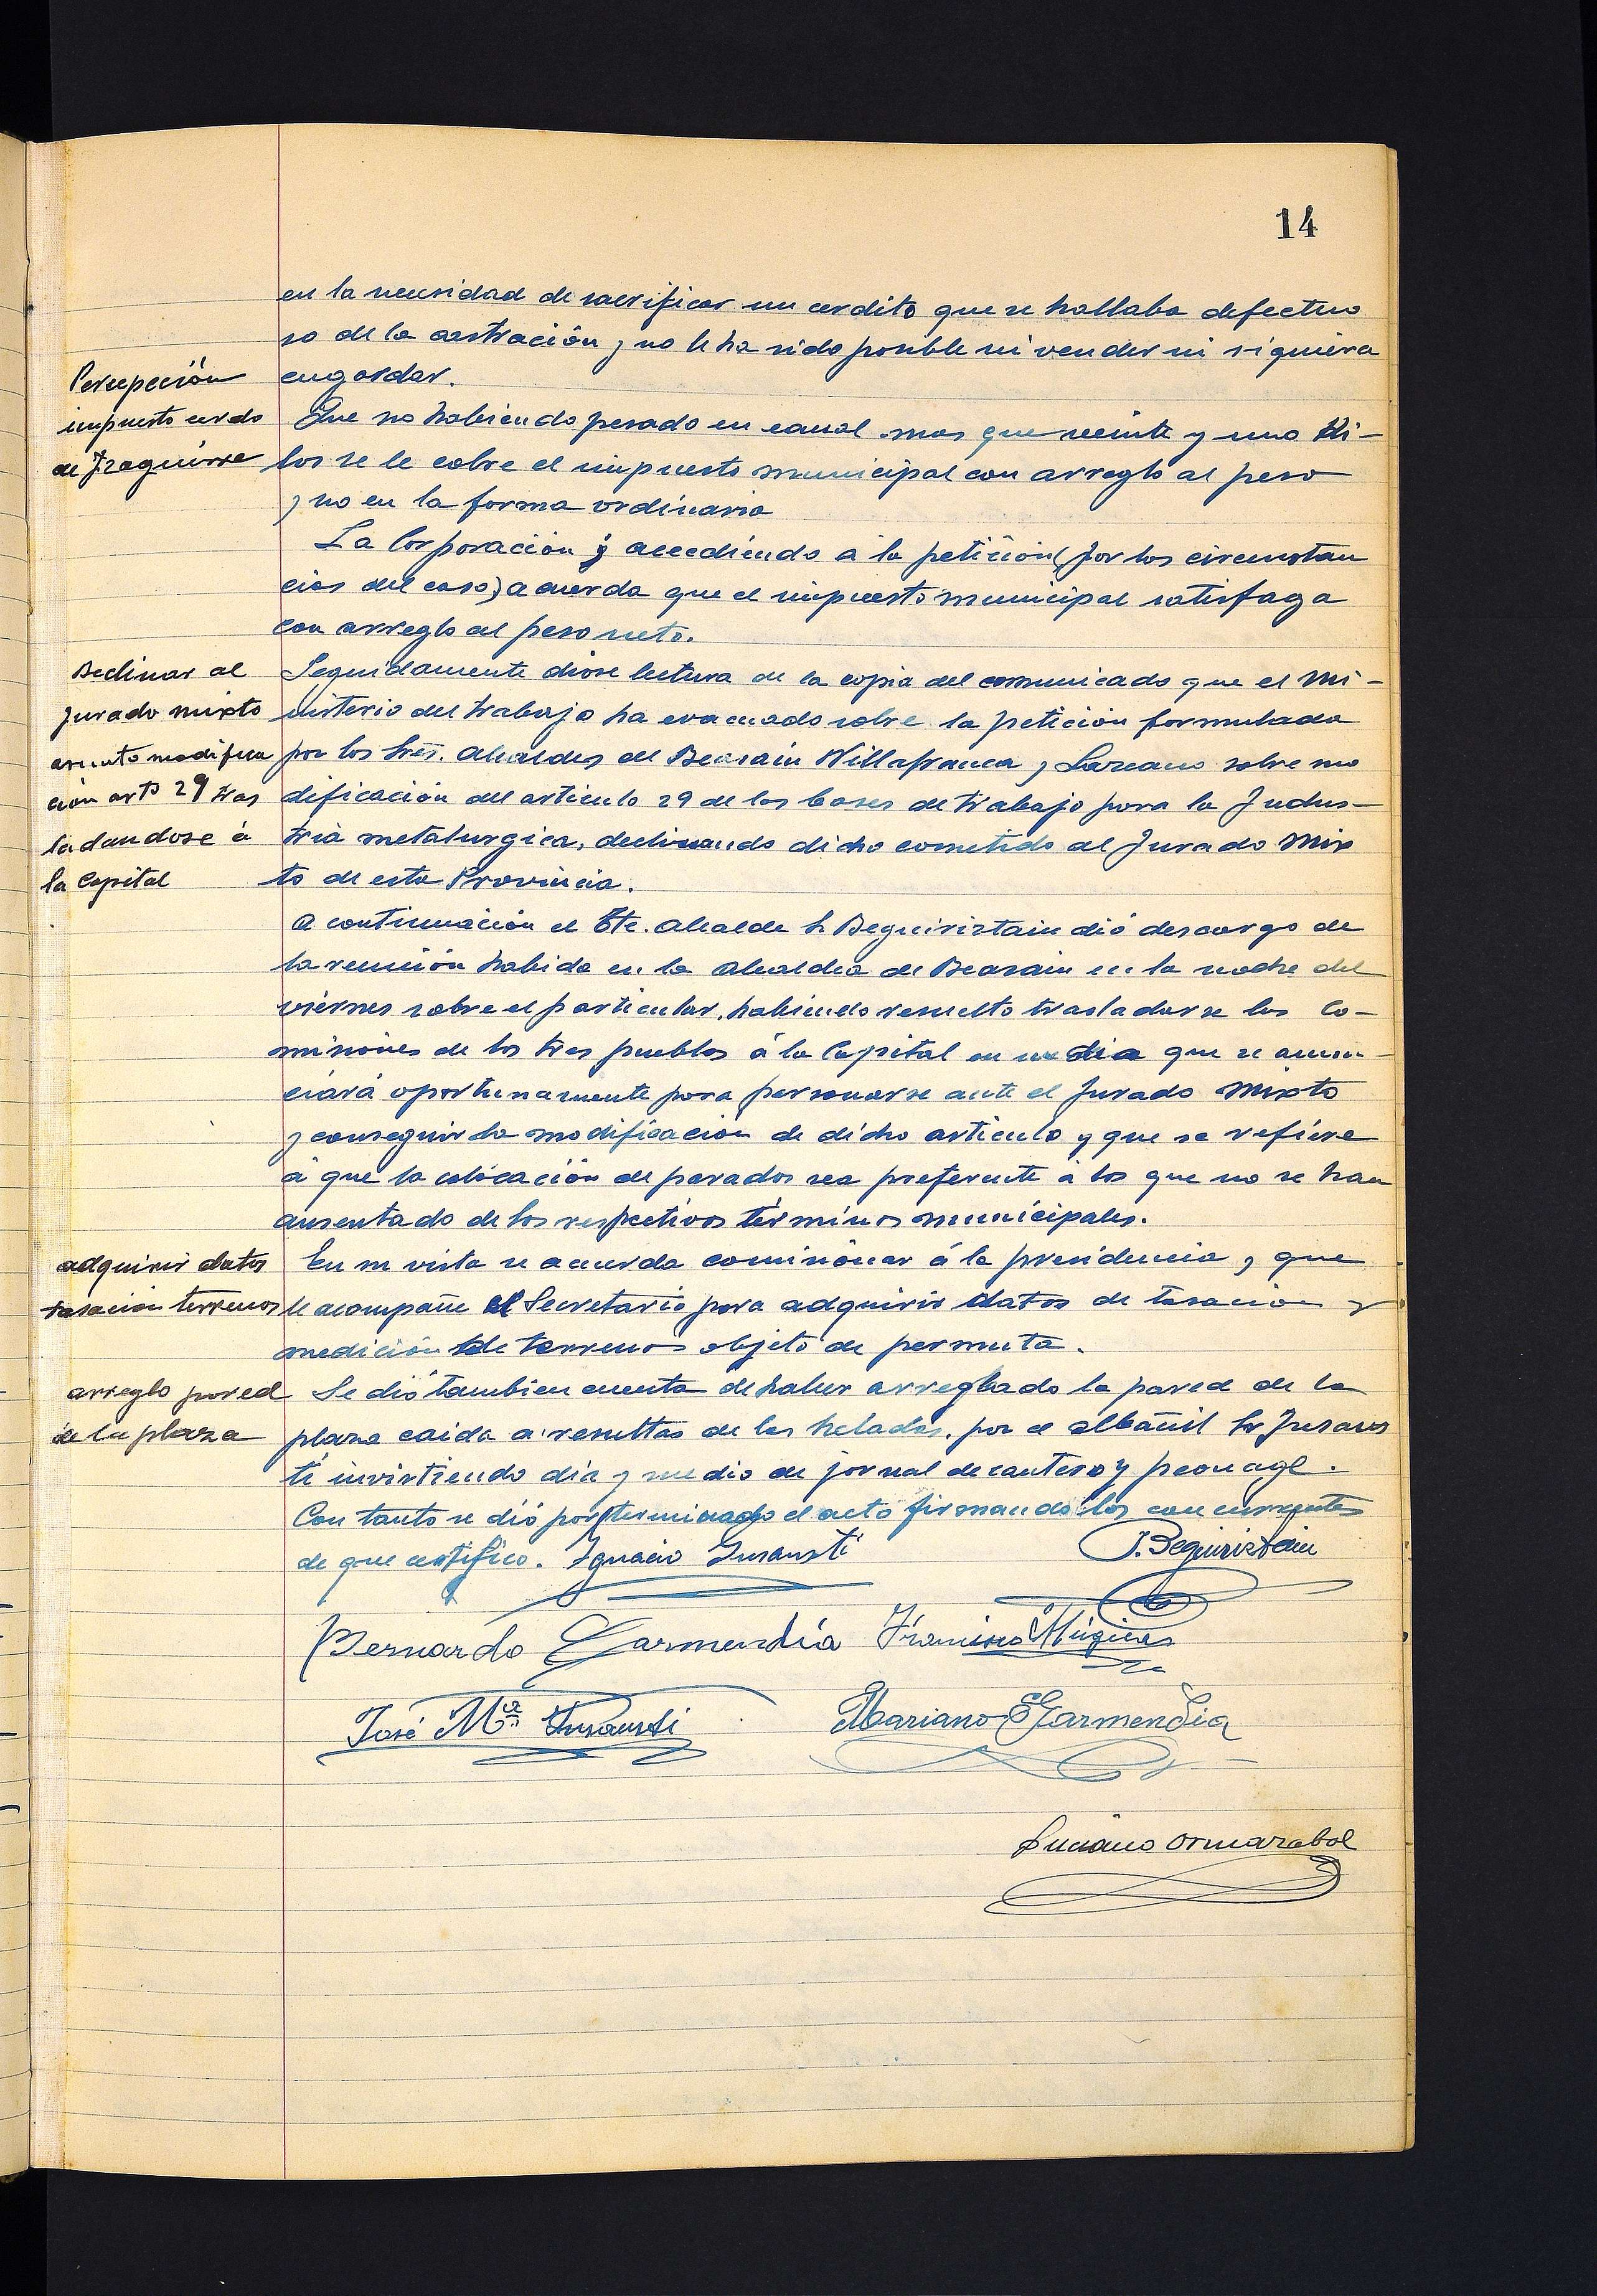 14
en la necesidad de sacrificar un cerdito que se hallaba defectuo
so de la castración y no le ha sido posible ni vender ni siquiera
engordar.
Percepción
impuesto cerdo
de Izaguirre
Que no habiendo pesado en canal mas que veinte y uno Ki-
los se le cobre el impuesto municipal con arreglo al peso
y no en la forma ordinaria
La Corporación y accediendo á la petición (por las circunstan
cias del caso) acuerda que el impuesto municipal satisfaga
con arreglo al peso neto.
Declinar al
jurado mixto
asunto modifica
ción artº 29 tras
ladandose á
la Capital
Seguidamente dióse lectura de la copia del comunicado que el Mi-
nisterio del trabajo ha evacuado sobre la petición formulada
por los Sres. Alcaldes de Beasain Villafranca y Lazcano sobre mo
dificación del articulo 29 de las bases de trabajo para la Indus-
tria metalurgica, declinando dicho cometido al Jurado Mix
to de esta Provincia.
A continuación el Tte. Alcalde Sr Beguiristain dió descargo de
la reunión habida en la Alcaldia de Beasain en la noche del
viernes sobre el particular, habiendo resuelto trasladarse las Co-
misiones de los tres pueblos á la Capital en un dia que se anun-
ciará oportunamente para personarse ante el Jurado Mixto
y conseguir la modificación de dicho articulo y que se refiere
á que la colocación de parados sea preferente á los que no se han
ausentado de los respectivos términos municipales.
adquirir datos
tasación terrenos
En su vista se acuerda comisionar á la presidencia y que
le acompañe el Secretario para adquirir datos de tasación y
medición de terrenos objeto de permuta.
arreglo pared
de la plaza
Se dió tambien cuenta de haber arreglado la pared de la
plaza caida a resultas de las heladas, por el albañil Sr Insaus
ti invirtiendo dia y medio de jornal de cantero y peonage.
Con tanto se dió por terminado el acto firmando los concurrentes
de que certifico. Ignacio Insausti
J. Beguiristain
Bernardo Garmendia Francisco Múgica
José Mª Insausti
Mariano Garmendia
Luciano Ormazabal